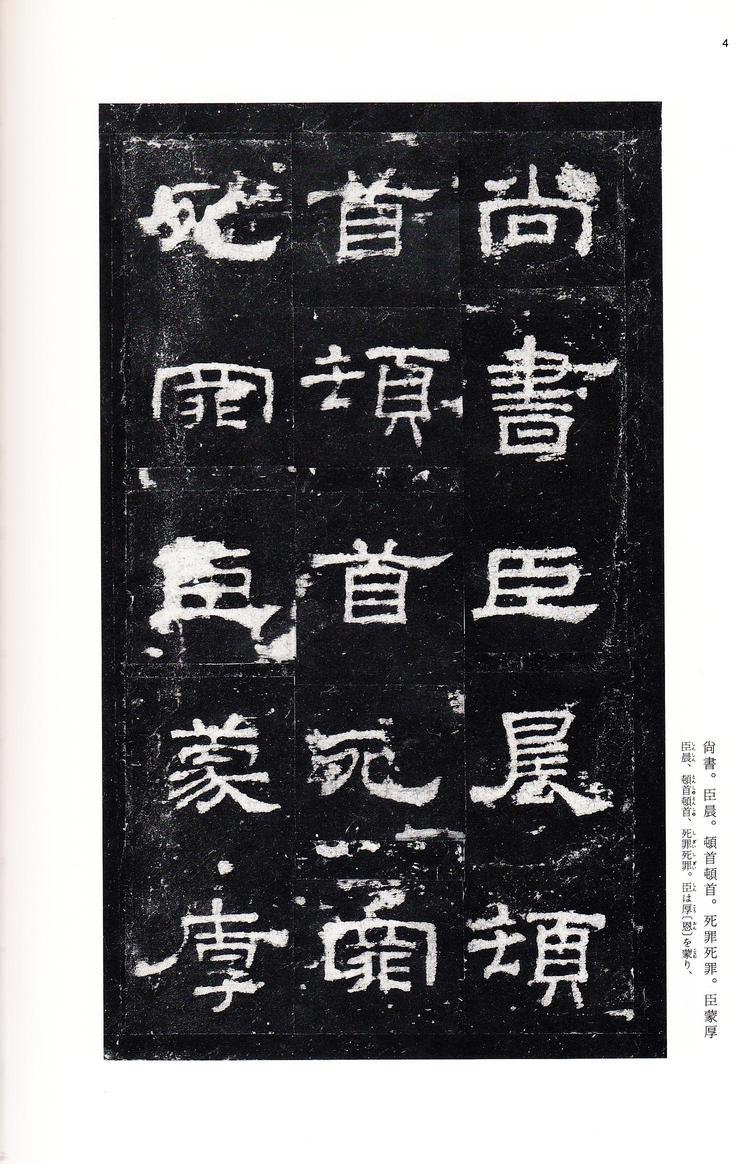 4
尚書臣晨頓
首頓首死罪
死罪臣蒙厚
尚書。臣晨。頓首頓首。死罪死罪。臣蒙厚
臣晨、頓首頓首、死罪死罪。臣は厚〔恩〕を蒙り、